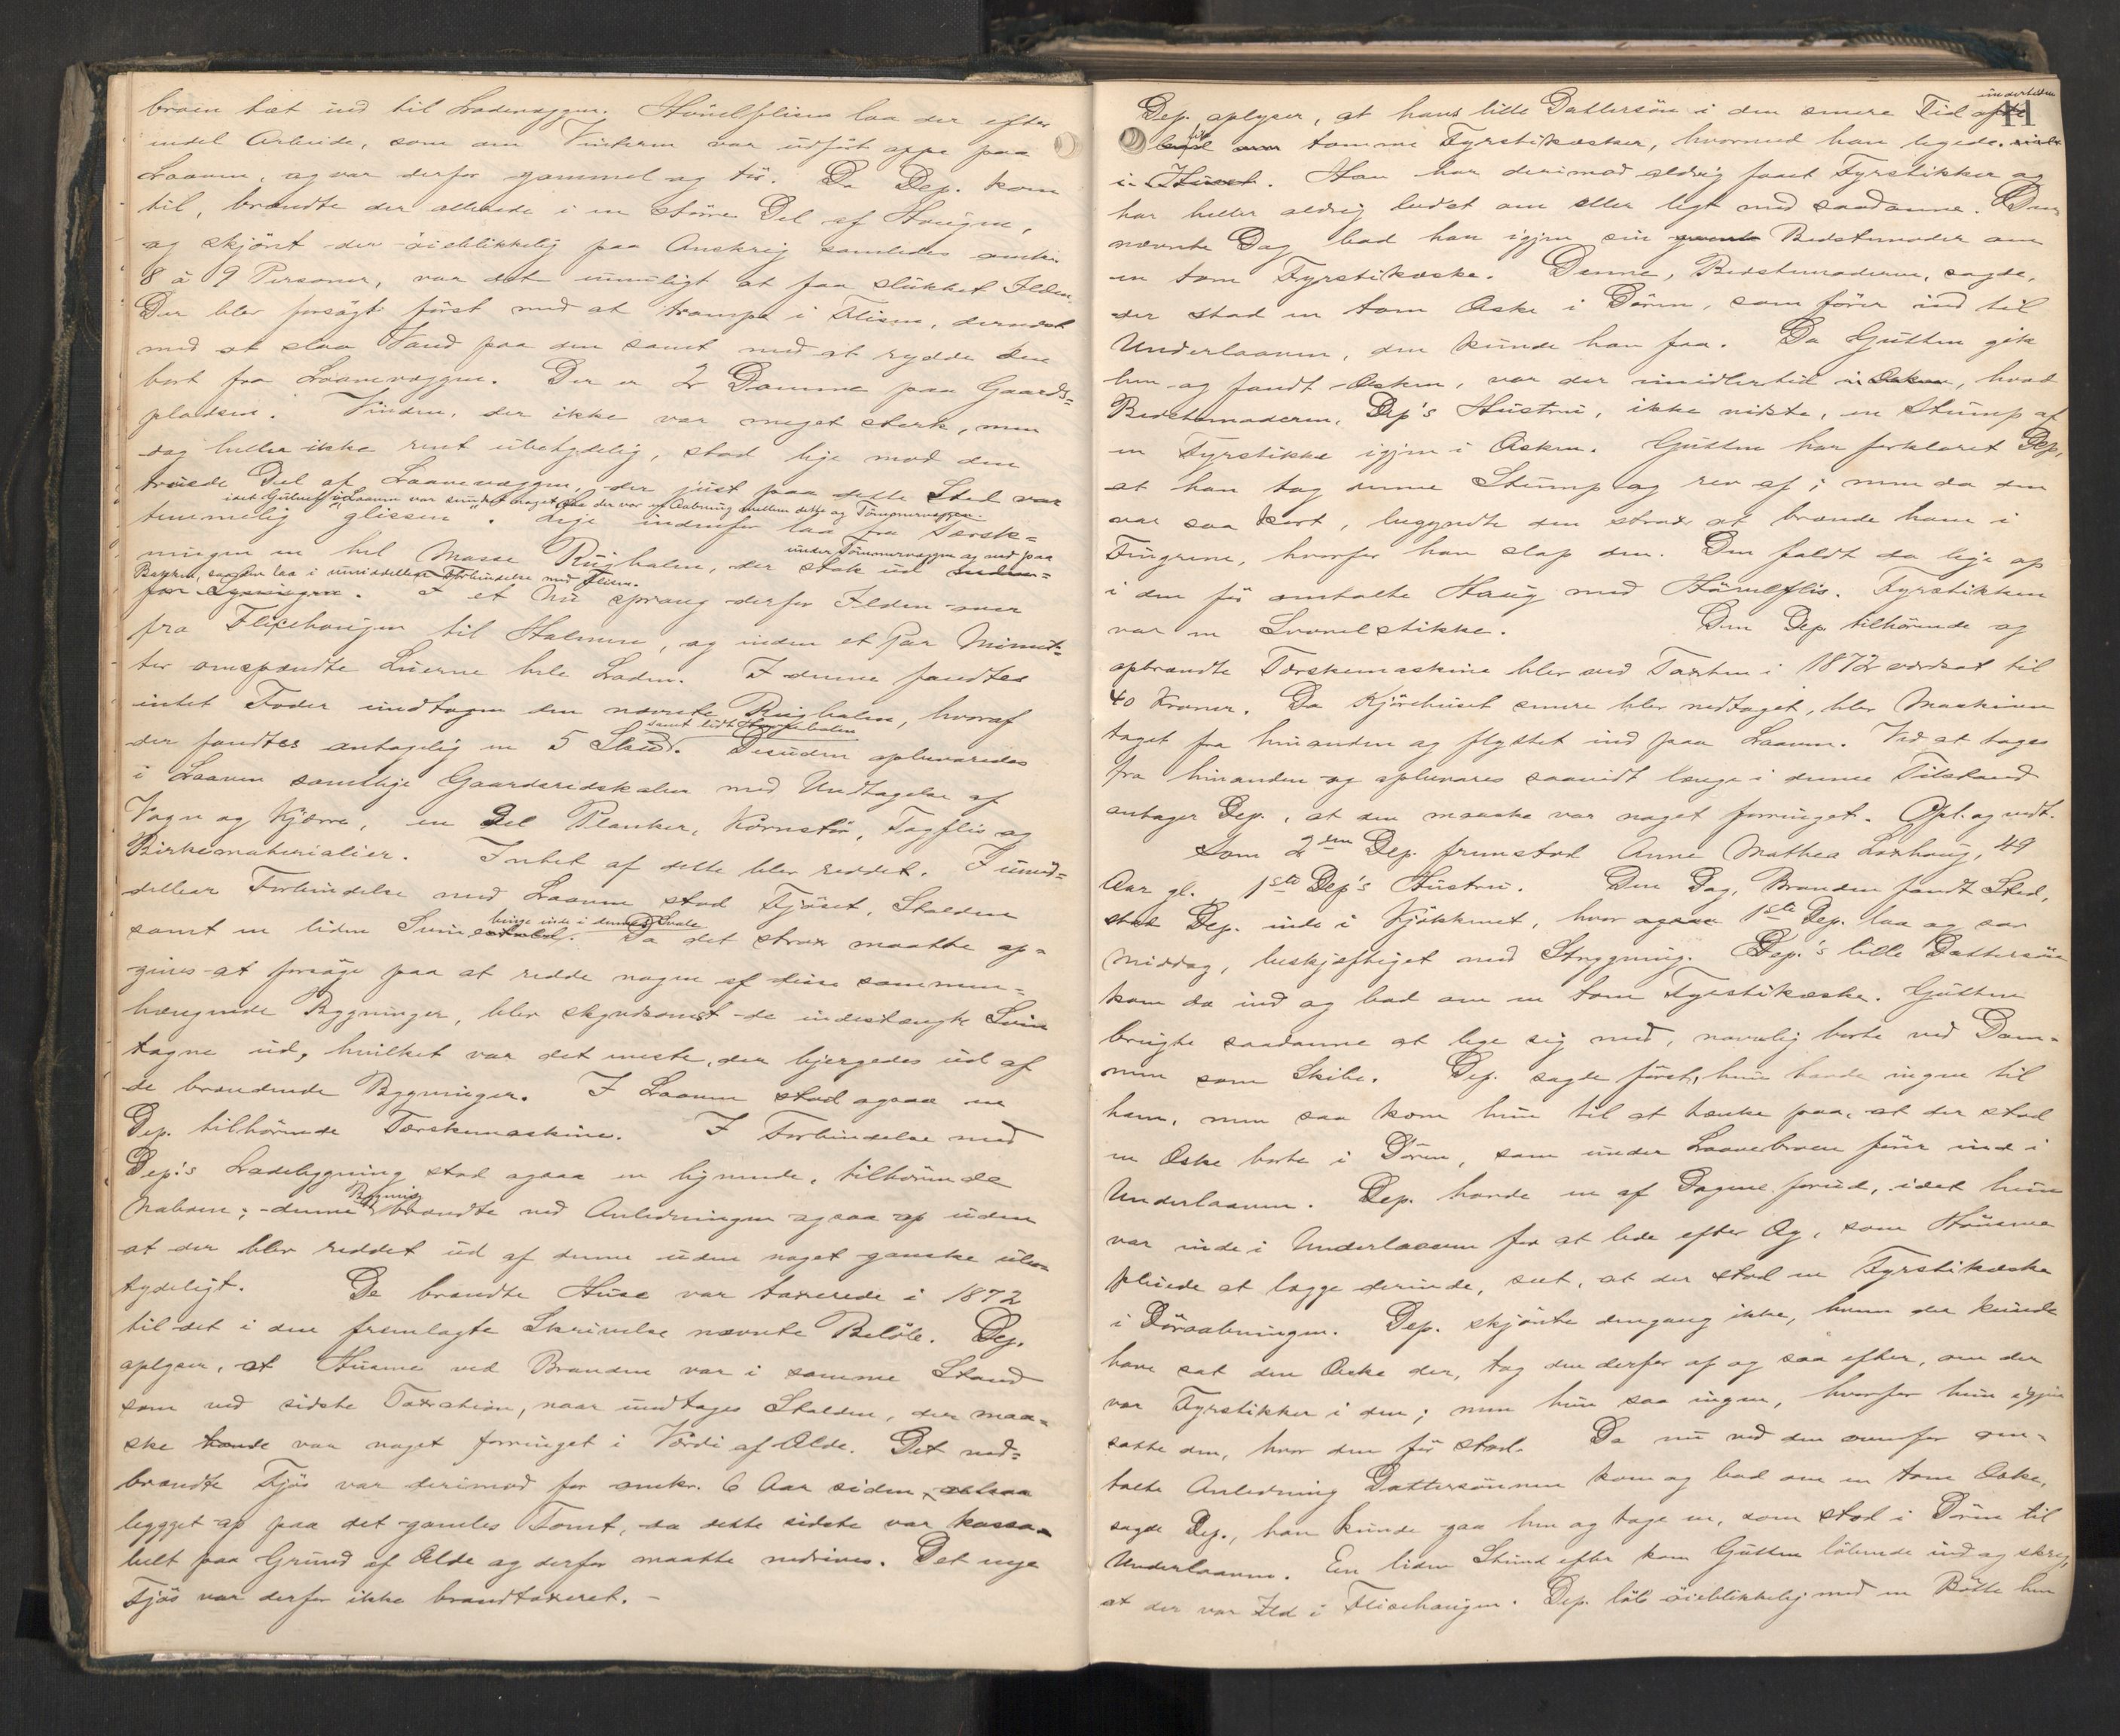 broen tæt ind til Ladevæggen. Høvelflisen laa der efter
endel Arbeide, som om Vinteren var udført oppe paa
Laaven, og var derfor gammel og tør. Da Dep. kom
til, brændte der allerede i en større Del af Haugen,
og skjönt der öieblikkelig paa Anskrig samledes omkr.
8 à 9 Personer, var det umuligt at faa slukket Ilden.
Der blev forsögt först med at trampe i Flisen, dernæst
med at slaa Vand paa den samt med at rydde den
bort fra Laavevæggen. Der er 2 Damme paa Gaards=
pladsen. Vinden, der ikke var meget sterk, men
dog heller ikke rent ubetydelig, stod lige mod den
Del af Laavevæggen, der just paa dette Sted var
idet Gulvet i Laaven var sunket noget, saa der var en Aabning mellem dette og Tömmervæggen.
temmelig "glissen". Lige indenfor laa fra Tærsk=
ningen en hel Masse Rughalm, der stak ud
under Tömmervæggen og ned paa
Bakken, saa den laa i umiddelbar Forbindelse med Flisen.
I et Nu sprang derfor Ilden over
fra Flisehaugen til Halmen, og inden et Par Minut=
ter omspændte Luerne hele Laden. I denne fandtes
intet Foder undtagen den nævnte Rughalm, hvoraf
samt lidt
der fandtes antagelig en 5 Stud. Desuden opbevaredes
i Laaven samtlige Gaardsredskaber med Undtagelse af
Vogn og Kjærre, en Del Planker, Kornstör, Tagflis og
Birkematerialier. Intet af dette blev reddet. I umid=
delbar Forbindelse med Laaven stod Fjöset, Stalden
binge inde i dennes Svale
samt en liden Svine. Da det strax maatte op=
gives at forsöge paa at redde nogen af disse sammen=
hængende Bygninger, blev skyndsomst de indestængte Svin
tagne ud, hvilket var det meste, der bjergedes ud af
de brændende Bygninger. I Laaven stod ogsaa en
Dep. tilhörende Tærskemaskine. I Forbindelse med
Dep.'s Ladebygning stod ogsaa en lignende, tilhörende
Bygning
Naboen; denne brændte ved Anledningen ogsaa op uden
at der blev reddet ud af denne uden noget ganske ube=
tydeligt. De brændte Huse var taxerede i 1872
til det i den fremlagte Skrivelse nævnte Belöb. Dep.
oplyser, at Husene ved Branden var i samme Stand
som ved sidste Taxation, naar undtages Stalden, der maa=
ske havde var noget forringet i Værdi af Ælde. Det ned=
brændte Fjös var derimod for omkr. 6 Aar siden
bygget op paa det gamles Tomt, da dette sidste var kassa=
belt paa Grund af Ælde og derfor maatte nedrives. Det nye
Fjös var derfor ikke brandtaxeret. -
11
undertiden
Dep. oplyser, at hans lille Dattersön i den senere Tid ofte
tomme Fyrstikæsker, hvormed han legede.
i Huset. Han har derimod aldrig faaet Fyrstikker og
har heller aldrig bedst om eller legt med saadanne. Den
nævnte Dag bad han igjen sin Bedstemoder om
en tom Fyrstikæske. Denne, Bedstemoderen, sagde,
der stod en tom Æske i Dören, som förer ind til
Underlaaven, den kunde han faa. Da Gutten gik
hen og fandt Æsken, var der imidlertid i Æsken, hvad
Bedstemoderen, Dep's Hustru, ikke vidste, en Stump af
en Fyrstikke igjen i Æsken. Gutten har forklaret Dep.,
at han tog denne Stump og rev af; men da den
var saa kort, begyndte den strax at brænde ham i
Fingrene, hvorfor han slap den. Den faldt da lige op
i den för omtalte Haug med Hövelflis. Fyrstikken
var en Svovelstikke. Den Dep. tilhörende og
opbrændte Tærskemaskine blev ved Taxten i 1872 værdsat til
40 Kroner. Da Kjörehuset senere blev nedtaget, blev Maskinen
taget fra hinanden og flyttet ind paa Laaven. Ved at tages
fra hinanden og opbevares saavidt længe i denne Tilstand
antager Dep., at den maaske var noget forringet. Opl. og vedt.
Som 2den Dep. fremstod Anne Mathea Loxhaug, 49
Aar gl., 1ste Dep's Hustru. Den Dag, Branden fandt Sted,
stod Dep. inde i Kjökkenet, hvor ogsaa 1ste Dep. laa og sov
Middag, beskjæftiget med Strygning. Dep.'s lille Dattersön
kom da ind og bad om en tom Fyrstikæske. Gutten
brugte saadanne at lege sig med, navnlig borte ved Dam=
men som Skibe. Dep. sagde först, hun havde ingen til
ham, men saa kom hun til at tænke paa, at der stod
en Æske borte i Dören, som under Laavebroen förer ind i
Underlaaven. Dep. havde en af Dagene forud, idet hun
var inde i Underlaaven for at lede efter Æg, som Hönsene
pleiede at lægge derinde, seet, at der stod en Fyrstikæske
i Döraabningen. Dep. skjönte dengang ikke, hvem der kunde
have sat den Æske der, tog den derfor af og saa efter, om der
var Fyrstikker i den; men hun saa ingen, hvorfor hun igjen
satte den, hvor den för stod. Da nu ved den ovenfor om=
talte Anledning Dattersönnen kom og bad om en tom Æske,
sagde Dep., han kunde gaa hen og tage en, som stod i Dören til
Underlaaven. En liden Stund efter kom Gutten löbende ind og skreg,
at der var Ild i Flisehaugen. Dep. löb öieblikkelig med en Bötte hen